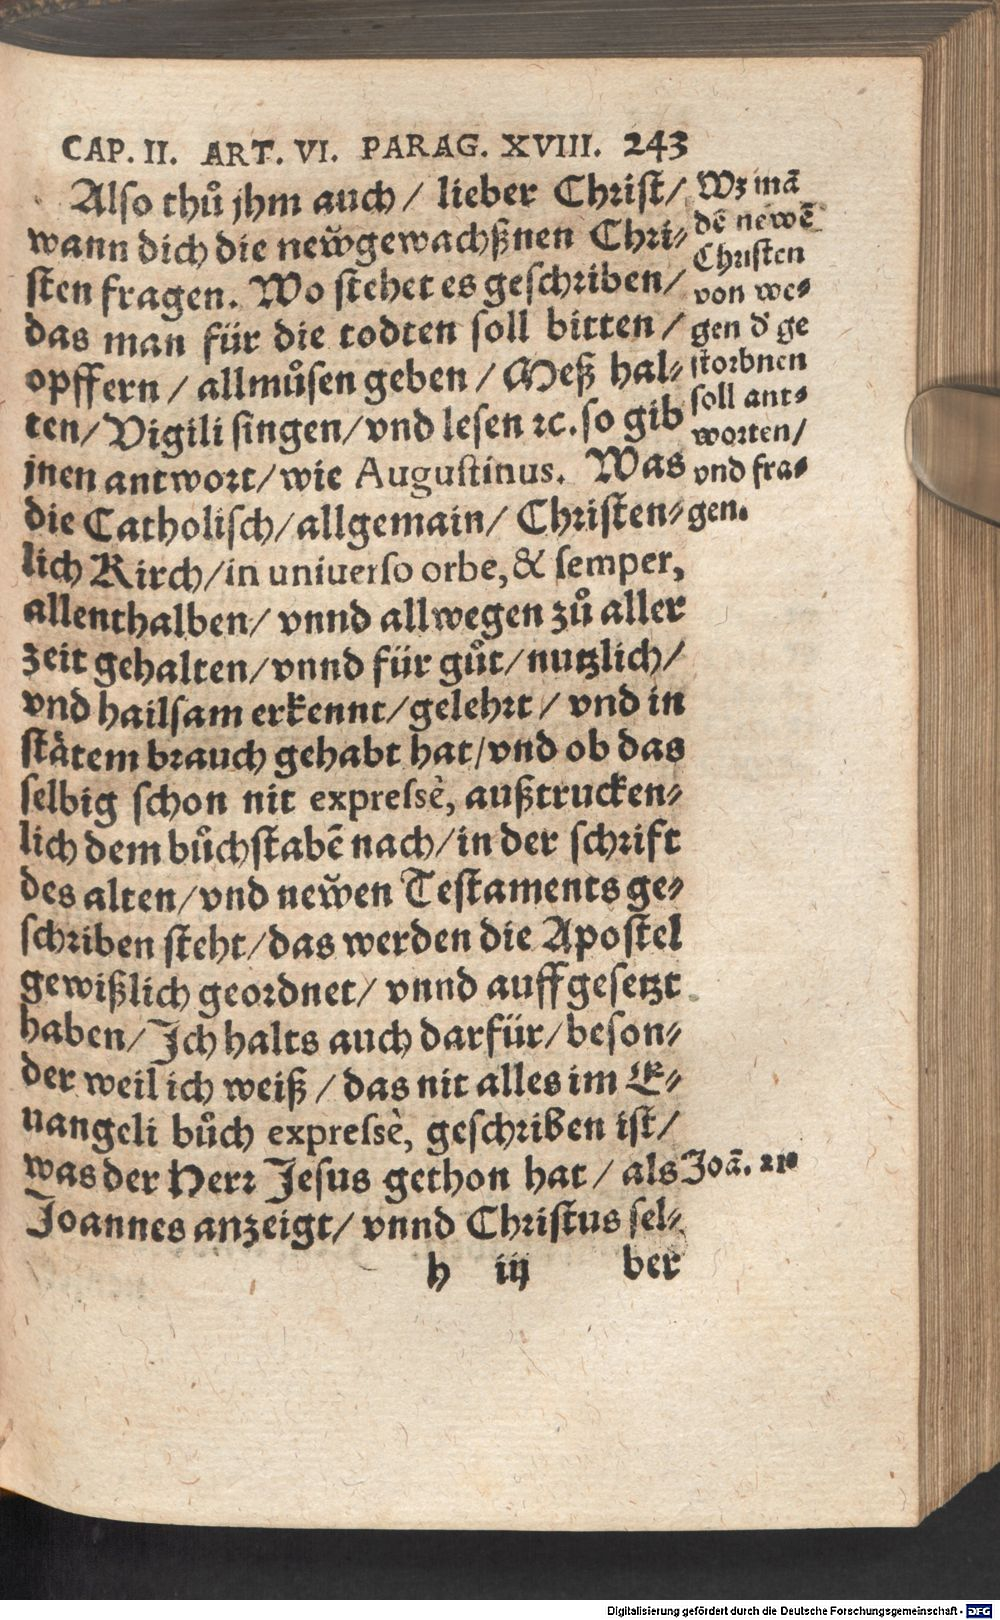 CAP. II. ART. VI. PARAG. XVIII. 243
Also thůjhm auch/ lieber Christ/
wann dich die new̆gewachßnen Chri⸗
sten fragen. Wo stehet es geschriben/
das man für die todten soll bitten/
opffern/ allmůsen geben/ Meß hal⸗
ten/ Vigili singen/ vnd lesen ꝛc. so gib
jnen antwort/ wie Augustinus. Was
die Catholisch/ allgemain/ Christen⸗
lich Kirch/ in uniuerso orbe, & semper,
allenthalben/ vnnd allwegen zů aller
zeit gehalten/ vnnd für gůt/ nutzlich/
vnd hailsam erkennt/ gelehrt/ vnd in
stätem brauch gehabt hat/ vnd ob das
selbig schon nit expressè, außtrucken⸗
lich dem bůchstabẽ nach/ in der schrift
des alten/ vnd new̆en Testaments ge⸗
schriben steht/ das werden die Apostel
gewißlich geordnet/ vnnd auffgesetzt
haben/ Ich halts auch darfür/ beson⸗
der weil ich weiß/ das nit alles im E⸗
uangeli bůch expressè, geschriben ist/
was der Herr Jesus gethon hat/ als
Joannes anzeigt/ vnnd Christus sel⸗
h iij ber
Wz mã
dẽ newẽ
Christen
von we⸗
gen d' ge
storbnen
soll ant⸗
worten/
vnd fra⸗
gen.
Joã. 21.
Digitalisierung gefördert durch die Deutsche Forschungsgemeinschaft - DFG